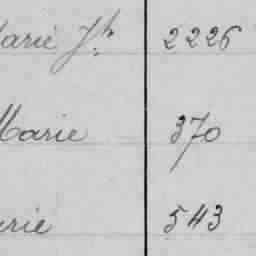 Marie Jh 2226
Marie 370
arie 543